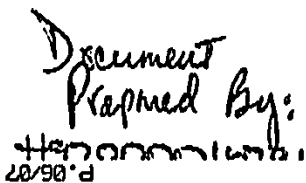 Document
Prepared By:
P.06/07